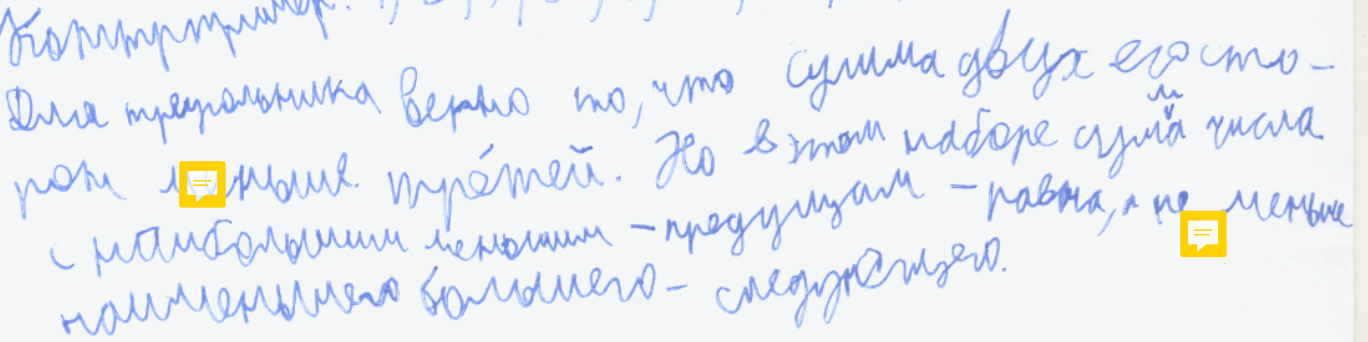 Контрпример: 1, 2, 3,
Для треугольника верно то, что сумма двух его сто-
рон меньше третей. Но в этом наборе сумма числа
с наибольшим меньшим - предущам - равна, а не меньше
наименьшего большего - следующего.